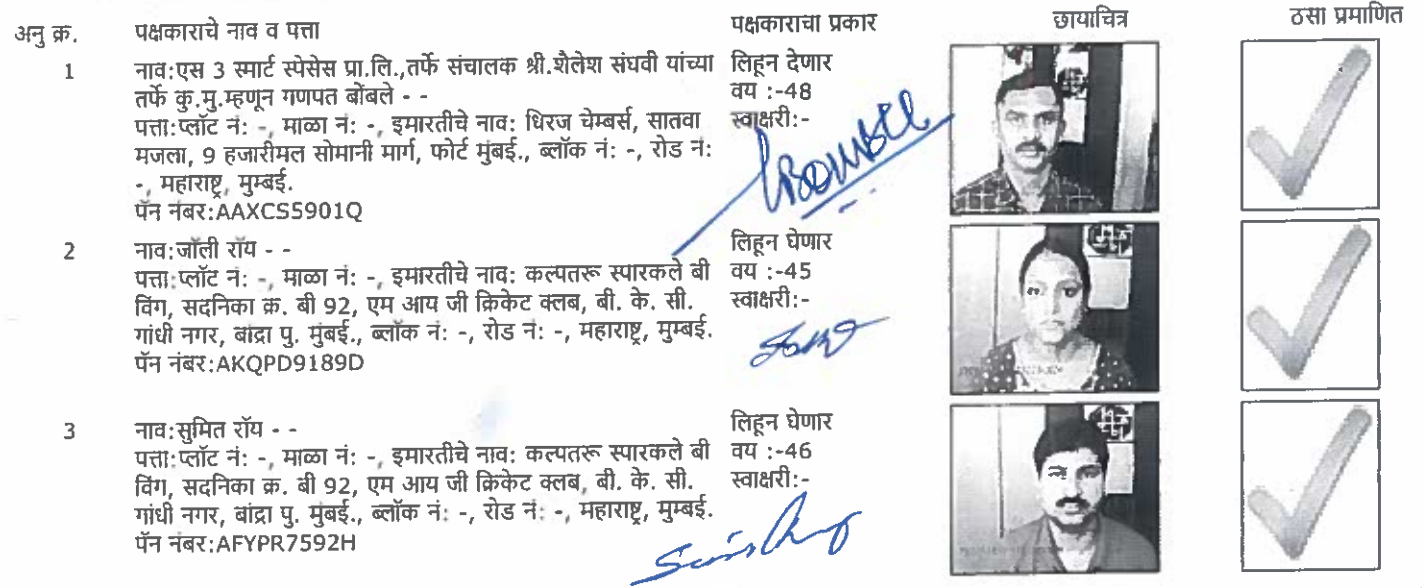 अनु क्र. पक्षकाराचे नाव व पत्ता पक्षकाराचा प्रकार छायाचित्र ठसा प्रमाणित
1 नाव:एस 3 स्मार्ट स्पेसेस प्रा.लि.,तर्फे संचालक श्री.शैलेश संघवी यांच्या लिहून देणार
तर्फे कु.मु.म्हणून गणपत बोंबले - - वय :-48
पत्ता:प्लॉट नं: -, माळा नं: -, इमारतीचे नाव: धिरज चेम्बर्स, सातवा स्वाक्षरी:-
मजला, 9 हजारीमल सोमानी मार्ग, फोर्ट मुंबई., ब्लॉक नं: -, रोड नं:
-, महाराष्ट्र, मुम्बई.
पॅन नंबर:AAXCS5901Q
2 नाव:जॉली रॉय - - लिहून घेणार
पत्ता:प्लॉट नं: -, माळा नं: -, इमारतीचे नाव: कल्पतरू स्पारकले बी वय :-45
विंग, सदनिका क्र. बी 92, एम आय जी क्रिकेट क्लब, बी. के. सी. स्वाक्षरी:-
गांधी नगर, बांद्रा पु. मुंबई., ब्लॉक नं: -, रोड नं: -, महाराष्ट्र, मुम्बई.
पॅन नंबर:AKQPD9189D
3 नाव:सुमित रॉय - - लिहून घेणार
पत्ता:प्लॉट नं: -, माळा नं: -, इमारतीचे नाव: कल्पतरू स्पारकले बी वय :-46
विंग, सदनिका क्र. बी 92, एम आय जी क्रिकेट क्लब, बी. के. सी. स्वाक्षरी:-
गांधी नगर, बांद्रा पु. मुंबई., ब्लॉक नं: -, रोड नं: -, महाराष्ट्र, मुम्बई.
पॅन नंबर:AFYPR7592H